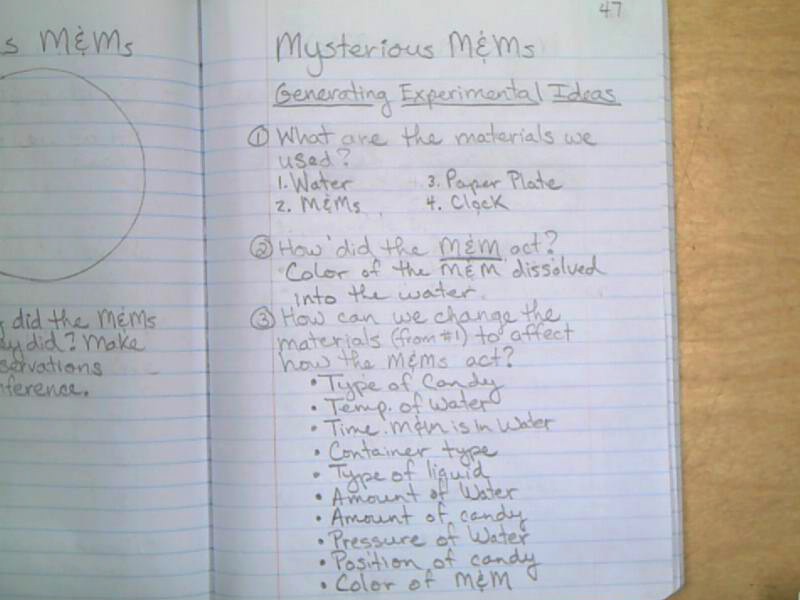 s M&Ms
did the M&Ms
did? Make
nference.
47
Mysterious M&Ms
Generating Experimental Ideas
① What are the materials we
used?
1. Water 3. Paper Plate
2. M&Ms 4. Clock
② How did the M&M act?
Color of the M&M dissolved
into the water.
③ How can we change the
materials (from #1) to affect
how the M&Ms act?
• Type of Candy
• Temp. of Water
• Time M&M is in Water
• Container type
• Type of liquid
• Amount of Water
• Amount of candy
• Pressure of Water
• Position of candy
• Color of M&M